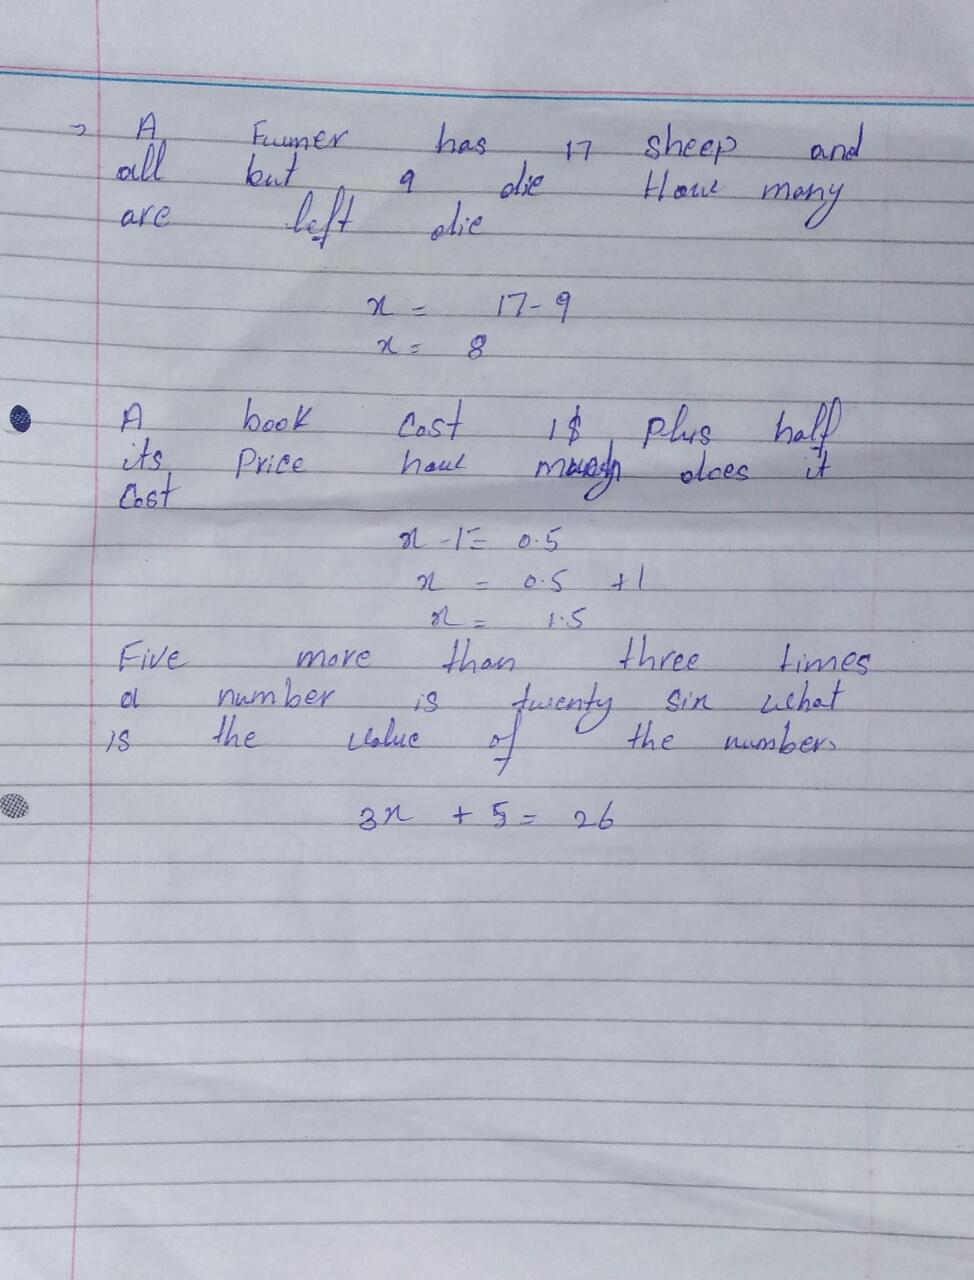 → A Fumer has 17 sheep and
all but 9 die How many
are left die
x = 17-9
x = 8
A book Cost 1$ plus half
its Price how does it
Cost
x - 1 = 0.5
x = 0.5 + 1
x = 1.5
Five more than three times
a number is twenty sin what
is the value of the number.
3x + 5 = 26